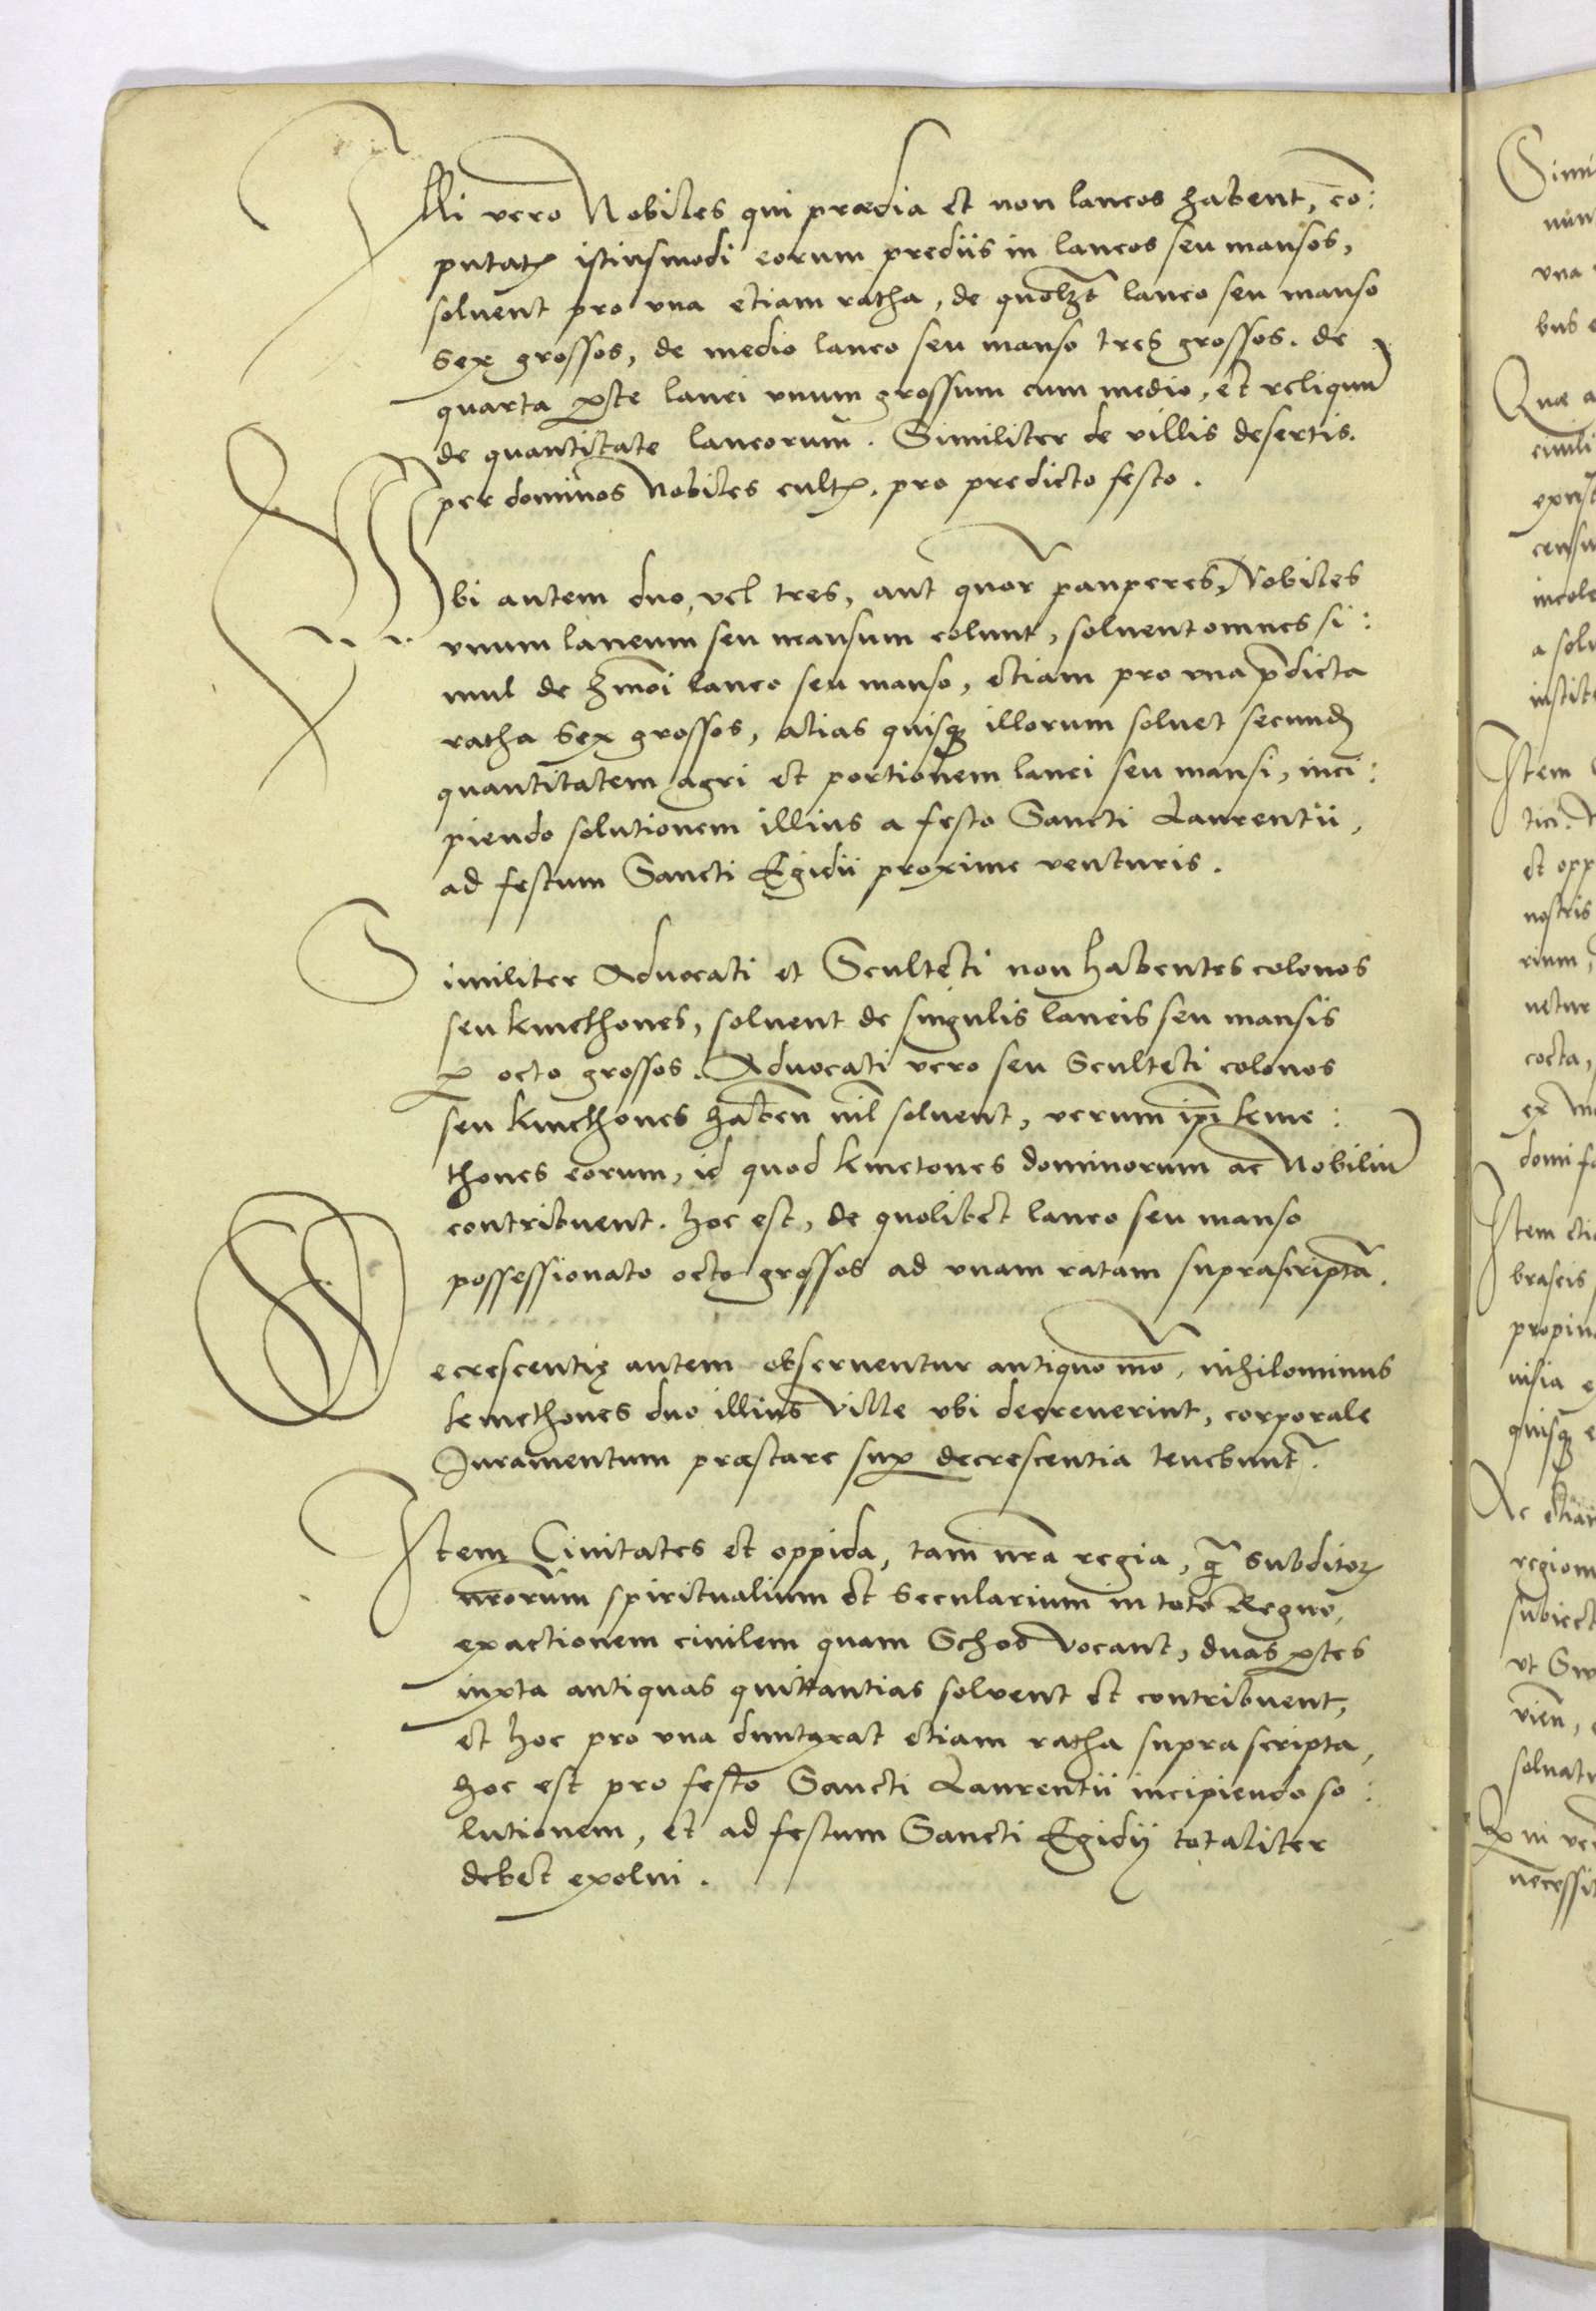 Illi vero Nobiles qui prædia et non laneos habent, cō:
putatꝝ istiusmodi eorum prediis in laneos seu mansos,
soluent pro vna etiam ratha, de quolꝫt laneo seu manso
sex grossos, de medio laneo seu manso tres grossos. de
quarta ꝑte lanei vnum grossum cum medio, et reliquū
de quantitate laneorum. Similiter de villis desertis.
per dominos Nobiles cultꝝ, pro predicto festo.
Vbi autem duo, vel tres, aut quor̃ pauperes Nobiles
vnum laneum seu mansum colunt, soluent omnes si:
mul de hm̄oi laneo seu manso, etiam pro vna p̄dicta
ratha sex grossos, alias quisqꝫ illorum soluet secund
quantitatem agri et portionem lanei seu mansi, inci:
piendo solutionem illius a festo Sancti Laurentii,
ad festum Sancti Egidii proxime venturis.
Similiter Aduocati et Sculteti non habentes colonos
seu kmethones, soluent de singulis laneis seu mansis
ꝑ octo grossos. Aduocati vero seu Sculteti colonos
seu kmethones habeñ nil soluent, verum ip̄i kme:
thones eorum, id quod kmetones dominorum ac Nobiliū
contribuent. hoc est, de quolibet laneo seu manso
possessionato octo grossos ad vnam ratam suprascriptā.
Decrescentię autem obseruentur antiquo mō, nihilominus
kmethones duo illius Ville vbi decreuerint, corporale
Iuramentum præstare suꝑ decrescentia tenebunt̃.
Item Ciuitates et oppida, tam nr̃a regia, q̃ subditoꝝ
nr̃orum spiritualium et secularium in toto Regno,
exactionem ciuilem quam Schos vocant, duas ꝑtes
iuxta antiquas quittantias soluent et contribuent,
et hoc pro vna duntaxat etiam ratha suprascripta,
hoc est pro festo Sancti Laurentii incipiendo so:
lutionem, et ad festum Sancti Egidij totaliter
debet exolui.